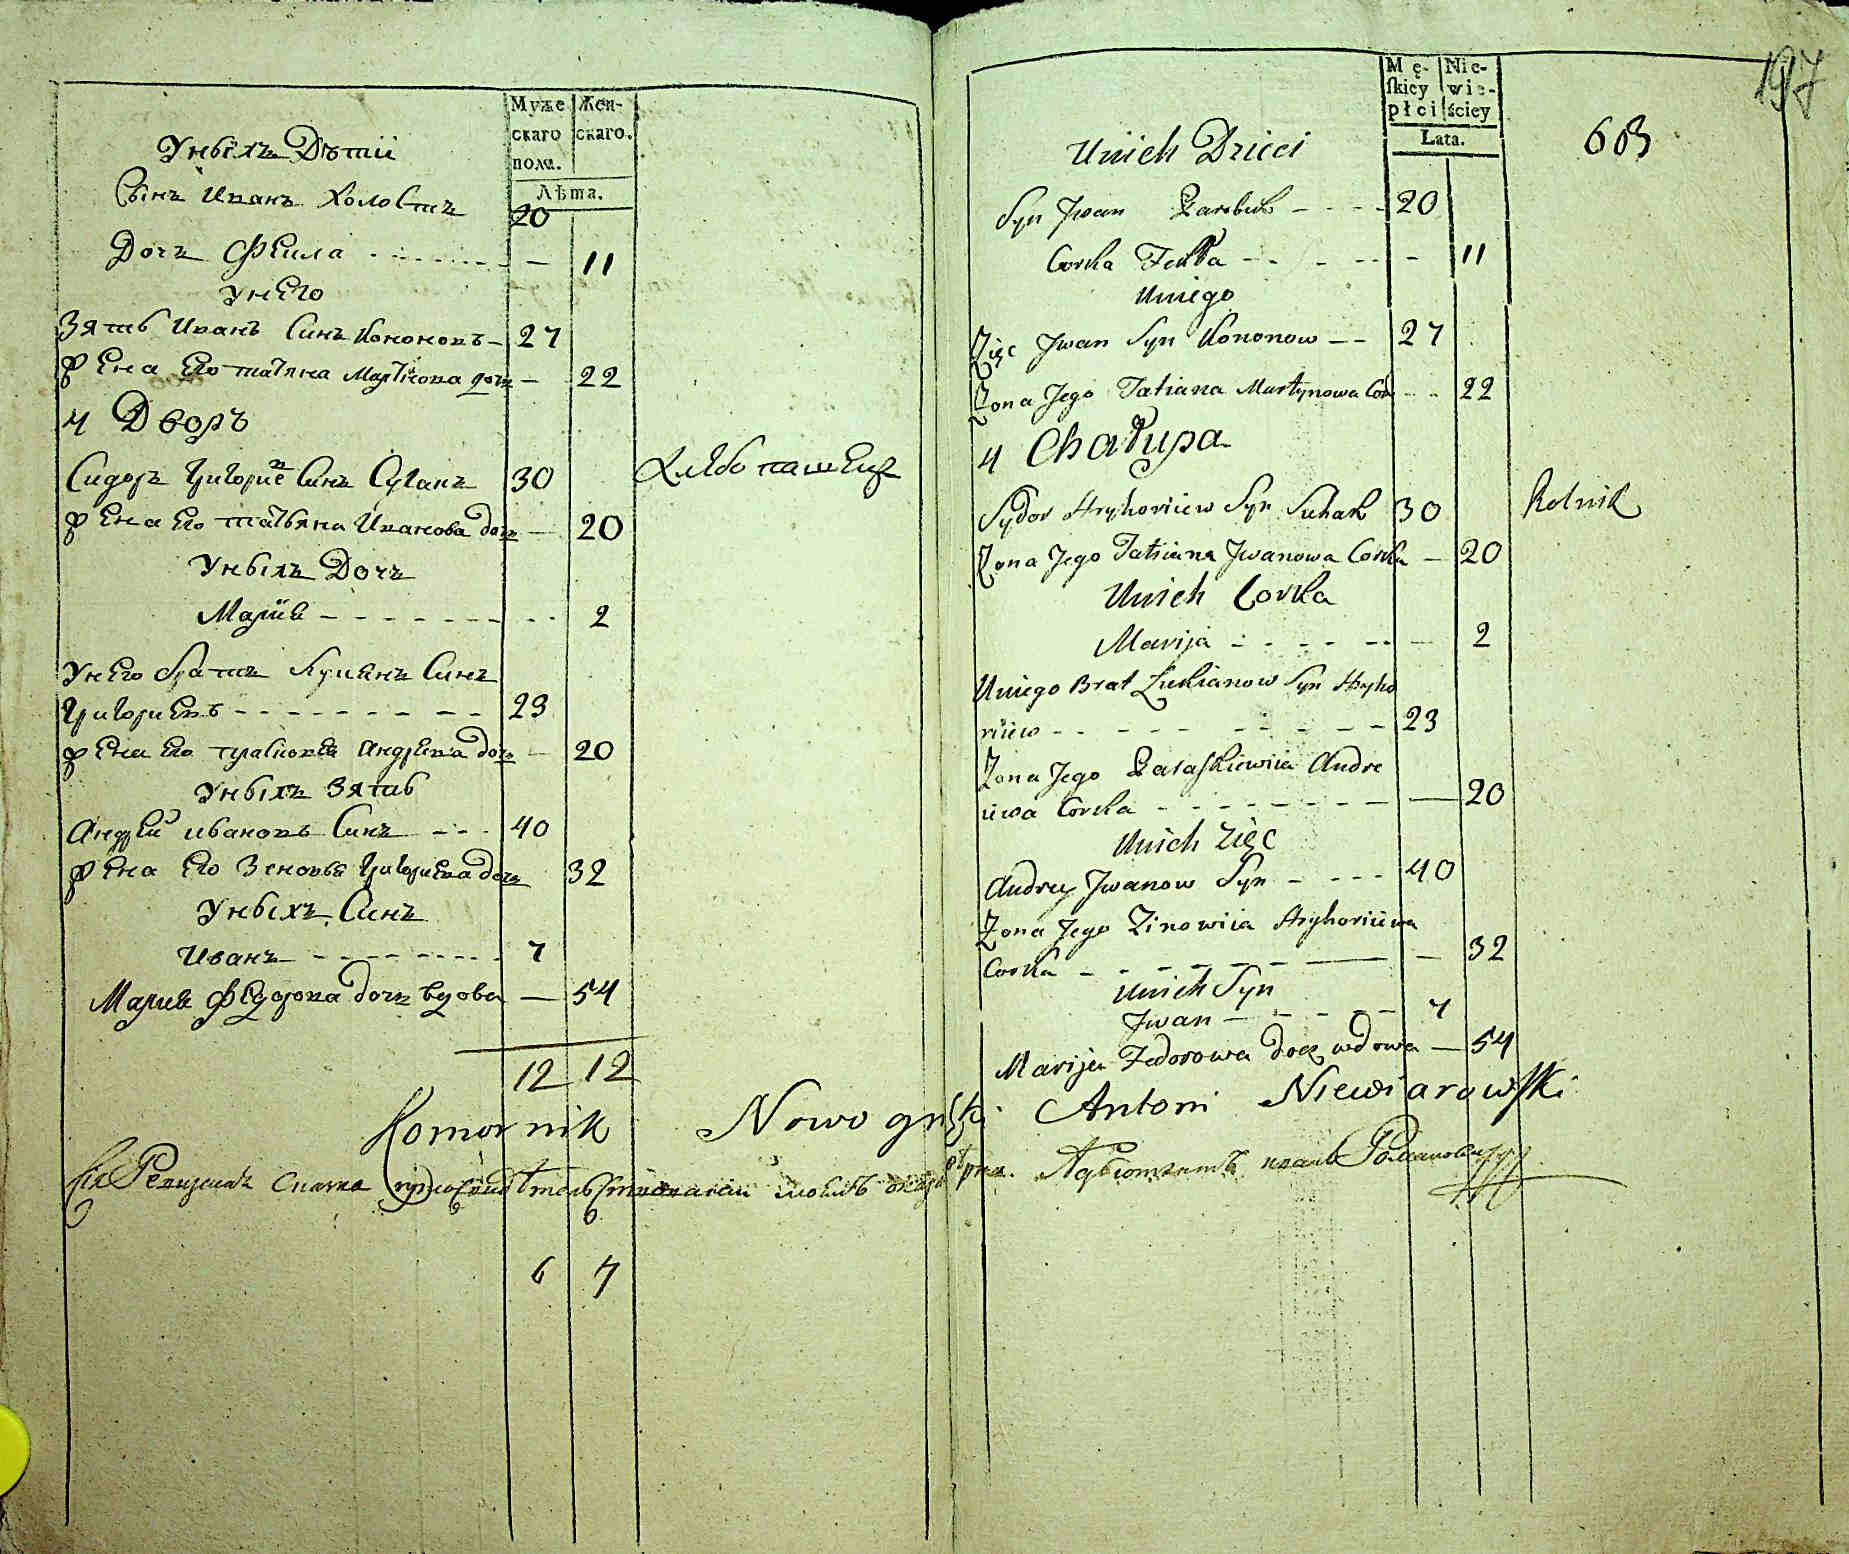 Муже Жен-
скаго скаго.
пола.
Лѣта.
Унѣихъ Дѣтїи
Сынъ Иванъ Холостъ 20
Дочъ Фекла - - - - - - 11
Унего
Зять Иванъ Синъ Кононовъ - 27
Жена Его татяна Мартїнова дочъ - 22
4 Дворъ
Сидоръ Григориевъ Синъ Суганъ 30 Хлебопашецъ
Жена Его татьяна Иванова дочъ - 20
Унѣихъ Дочъ
Марїя - - - - - - - - 2
Унего братъ Лукянъ Синъ
Григориевъ - - - - - - - - 23
Жена Его прасковея Андреева дочъ - 20
Унѣихъ Зять
Андрей ивановъ Синъ - - - 40
Жена Его Зеновея Григориева дочъ 32
Унѣихъ Синъ
Иванъ - - - - - - - - 7
Мария Федорова дочъ вдова - 54
12 12
197
603
Mę- Nie-
ſkiey wie-
płci ściey
Lata.
Unich Dzieci
Syn Jwan Parobek - - - - 20
Corka Fekła - - - - - - 11
Uniego
Zięc Jwan Syn Kononow - - 27
Zona Jego Tatiana Martynowa Cor - - 22
4 Chałupa
Sydor Hryhoriiew Syn Suhak 30 Rolnik
Zona Jego Tatiana Jwanowa Corka - 20
Unich Corka
Marija - - - - - - - 2
Uniego Brat Łukianow Syn Hryho
riiew - - - - - - - - - 23
Zona Jego Paraſkiewiia Andre
iiwa Corka - - - - - - - - 20
Unich Zięc
Andrey Jwanow Syn - - - - 40
Zona Jego Zinowiia Hryhoriiewa
Corka - - - - - - - - 32
Unich Syn
Jwan - - - - - 7
Marija Fedorowa docz wdowa - 54
Komornik Nowogrſki Antoni Niewiarowſki
Сїя Ревизская Сказка
6 7